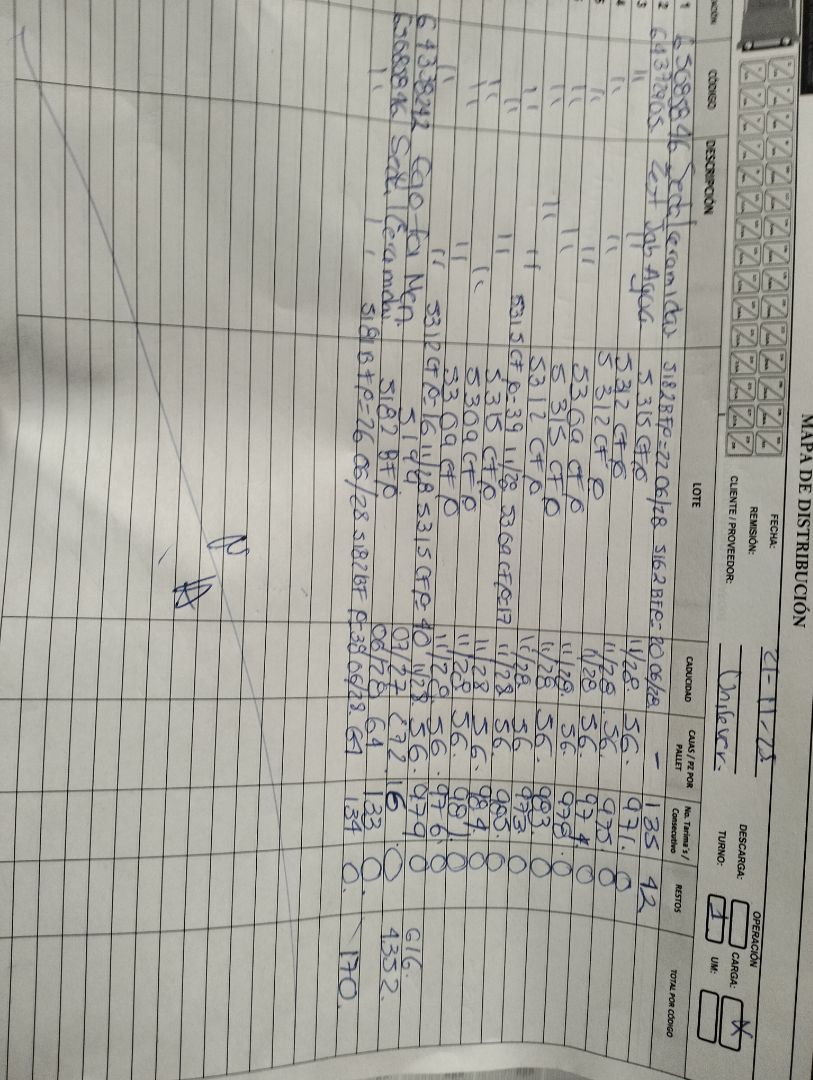 MAPA DE DISTRIBUCIÓN
FECHA: 21-11-25
REMISIÓN:
CLIENTE / PROVEEDOR: Unilever.
OPERACIÓN
DESCARGA: CARGA: X
TURNO: 1 UM:
CÓDIGO DESCRIPCIÓN LOTE CADUCIDAD CAJAS / PZ POR PALLET No. Tarima's / Consecutivo RESTOS TOTAL POR CÓDIGO
1 Sedal Ceramidas 5182BFP=22 06/28 5162BFP=20 06/28 - 135 42
2 64372905 Zest Jab Agua 5315 CFP 11/28. 56. 971. 0
3 " " 5312 CFP 11/28. 56 975 0
4 " " 5312 CFP 11/28 56. 974. 0
5 " " 5309 CFP 11/28. 56 978. 0
" " 5315 CFP 11/28 56. 983. 0
" " 5312 CFP 11/28 56 973. 0
" " 5315 CFP=39 11/28 5309 CFP=17 11/28 56. 985. 0
" " 5315 CFP 11/28 56. 984. 0
" " 5309 CFP 11/28 56. 981. 0
" " 5309 CFP 11/28 56. 976. 0
" " 5312 CFP=16 11/28 5315 CFP=40 11/28 56. 979 0 616.
64338242 Men. 07/27 272. 16 0 4352.
65688846 Sedal Ceramidas 5182 BFP 06/28 64 133 0.
" " 5181BFP=26 06/28 5182BFP=38 06/28. 64 134 0. 170.